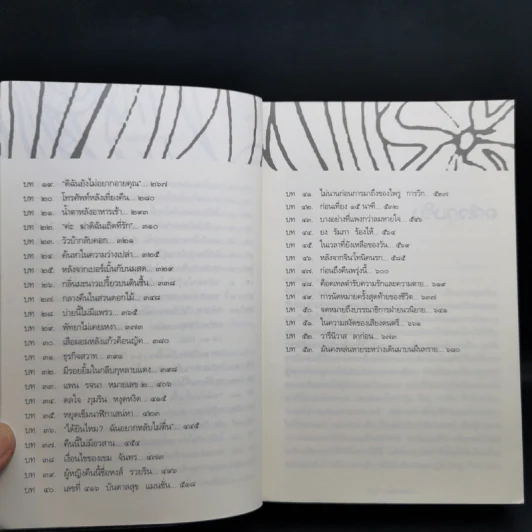 บท ๑๙. "ดิฉันยังไม่อยากอายคุณ" ... ๒๖๗
บท ๒๐. โทรศัพท์หลังเที่ยงคืน ... ๒๘๐
บท ๒๑. น้ำตาหลังอาหารเช้า ... ๒๙๓
บท ๒๒. "ค่ะ ฆ่าดิฉันเถิดที่รัก" ... ๓๑๐
บท ๒๓. วิวบ้ากลับคอก ... ๓๒๑
บท ๒๔. ค้นหาในความว่างเปล่า ... ๓๒๕
บท ๒๕. หลังจากเบอร์เบิ้นกับนมสด ... ๓๒๙
บท ๒๖. กลิ่นมะนาวเปรี้ยวบนผืนขึ้น ... ๓๔๘
บท ๒๗. กลางคืนในสวนดอกไม้ ... ๓๔๘
บท ๒๘. บ่ายนี้ไม่มีแพรว ... ๓๖๕
บท ๒๙. พัทยาไม่เคยเหงา ... ๓๗๓
บท ๓๐. เสือผอมหลังแก้วค็อนญัค ... ๓๘๐
บท ๓๑. ธุรกิจสวาท ...
บท ๓๒. มีรอยยิ้มในกลีบกุหลาบแดง ... ๓๙๘
บท ๓๓. แพน รจนา หมายเลข ๒ ... ๔๐๖
บท ๓๔. ดลใจ ภุมริน หงุดหงิด ... ๔๑๕
บท ๓๕. หยุดเข็มนาฬิกาเสน่หา ... ๔๒๓
บท ๓๖. "ได้ยินไหม? ฉันอยากหลับไม่ตื่น" ... ๔๔๕
บท ๓๗. คืนนี้ไม่มีอวสาน ... ๔๕๔
บท ๓๘. เงื่อนไขของเขม จันทร ... ๔๗๓
บท ๓๙. ผู้หญิงคนนี้ชื่อหงส์ รวยริน ... ๔๙๖
บท ๔๐. เลขที่ ๔๑๖ บันดาลสุข แมนชั่น ... ๕๑๘
บท ๔๑. ไม่นานก่อนการมาถึงของไพรู การวิก ... ๕๓๗
บท ๔๒. ก่อนเที่ยง ๑๕ นาที ... ๕๓๒
บท ๔๓. บางอย่างที่แพงกว่าลมหายใจ ...
บท ๔๔. ยง รัมภา ร้องไห้ ...
บท ๔๕. ในเวลาที่ยังเหลือของวัน ...
บท ๔๖. หลังจากจินโทนิคนรก ... ๕๘๕
บท ๔๗. ก่อนถึงคืนพรุ่งนี้ ... ๖๐๐
บท ๔๘. ค็อคเทลสำรับความรักและความตาย ...
บท ๔๙. การนัดหมายครั้งสุดท้ายของชีวิต ... ๖๓๗
บท ๕๐. จดหมายถึงบรรณาธิการฝ่ายนวนิยาย ...
บท ๕๑. ในความสงัดของเสียงดนตรี ...
บท ๕๒. วารีนิวาส ลาก่อน ...
บท ๕๓. มันคงหล่นหายระหว่างเดินมาบนฝั่นทราย ... ๖๘๐